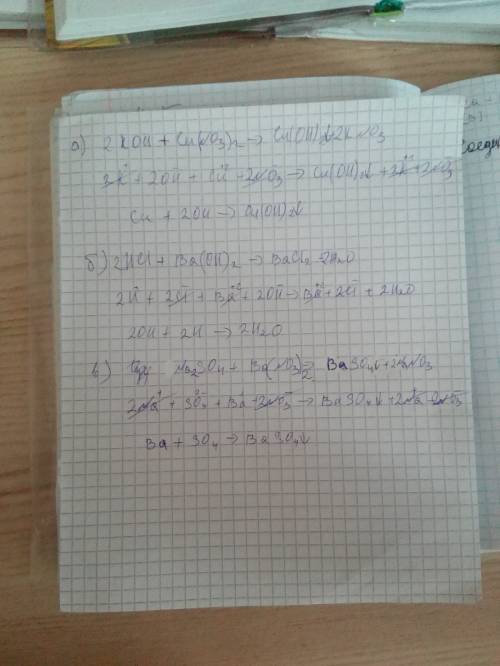 а) 2KOH + Cu(NO3)2 → Cu(OH)2↓+2KNO3
2K⁺ + 2OH⁻ + Cu⁺² + 2NO3⁻ → Cu(OH)2↓ + 2K⁺ + 2NO3⁻
Cu + 2OH → Cu(OH)2↓
б) 2HCl + Ba(OH)2 → BaCl2 + 2H2O
2H⁺ + 2Cl⁻ + Ba⁺² + 2OH⁻ → Ba⁺² + 2Cl⁻ + 2H2O
2OH + 2H → 2H2O
в) Na2SO4 + Ba(NO3)2 → BaSO4↓ + 2NaNO3
2Na⁺ + SO4²⁻ + Ba + 2NO3⁻ → BaSO4↓ + 2Na⁺ + 2NO3⁻
Ba + SO4 → BaSO4↓